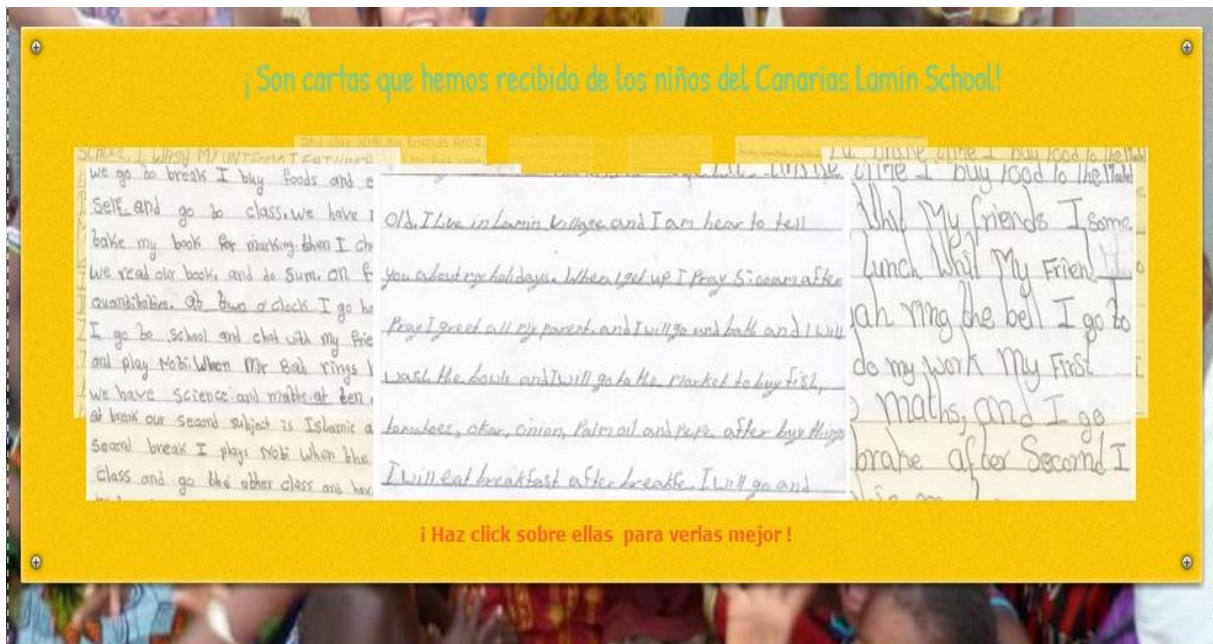 ¡ Son cartas que hemos recibido de los niños del Canarias Lamin School!
we go to break I buy foods and e
self and go to class. we have
bake my book for marking. then I ch
we read our book, and do sum. on f
quantitative. at two o'clock I go ho
I go to school and chat with my frie
and play Nobi. When Mr Bah rings
we have science and maths at ten
at break our second subject is Islamic a
second break I plays Nobi When the
class and go the other class and hav
old. I live in Lamin Village and I am hear to tell
you about my holidays. When I get up I Pray 5:00am after
Pray I greet all my parent. and I will go and bath and I will
wash the bowls and I will go to the market to buy fish,
tomatoes, okar, onion, Palm oil and pepe after buy things
I will eat breakfast after breakfe. I will go and
time I buy food to the Market
Whit My friends I some
Lunch Whit My Friend
ah ring the bell I go to
do my work My First
maths, and I go
brake after Second I
¡ Haz click sobre ellas para verlas mejor !